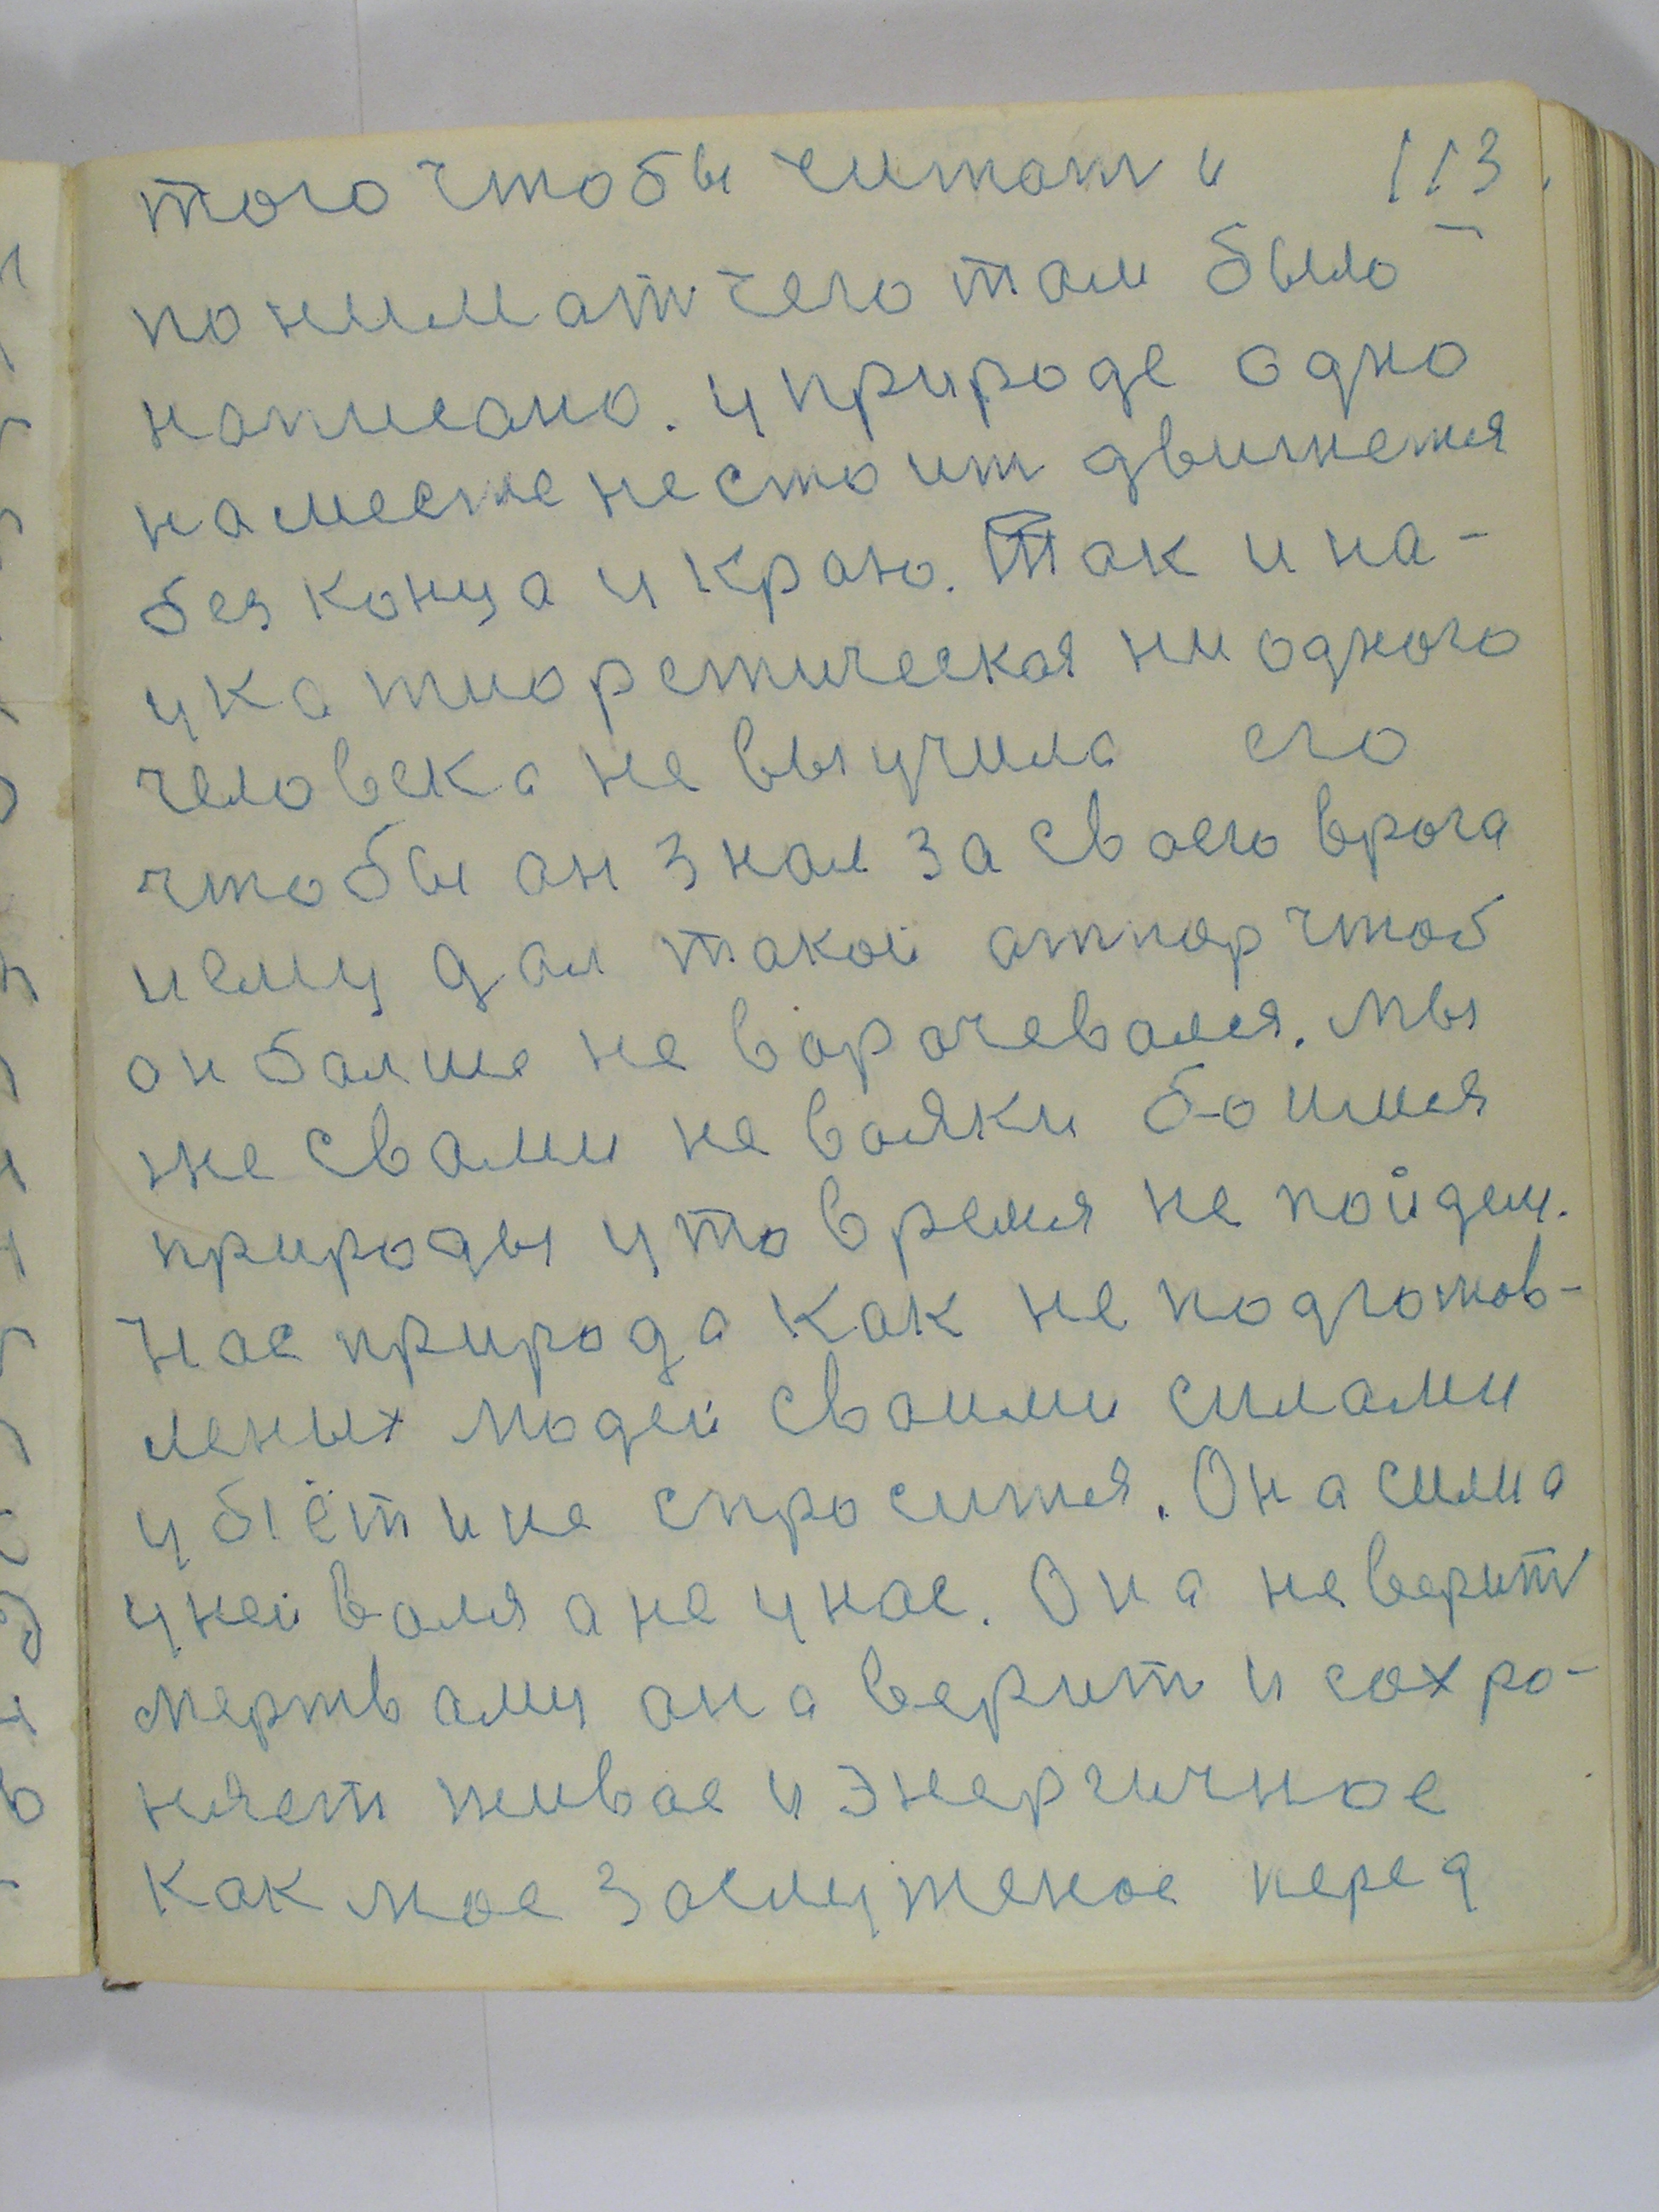 того чтобы читать и 113.
понимать чего там было
написано. у природе одно
на месте не стоит движется
без конца и краю. Так и на-
ука тиоретическая ни одного
человека не выучила его
чтобы он знал за своего врага
и ему дал такой отпор чтоб
он балше не ворочевался. Мы
же свами не вояки боимся
природы у то время не пойдем.
Нас природа как не подготов-
леных людей своими силами
убъёт и не спросится. Она сила
у ней воля а не у нас. Она не верить
мертвому она верить и сохра-
няет живое и энергичное
как мое заслуженое перед